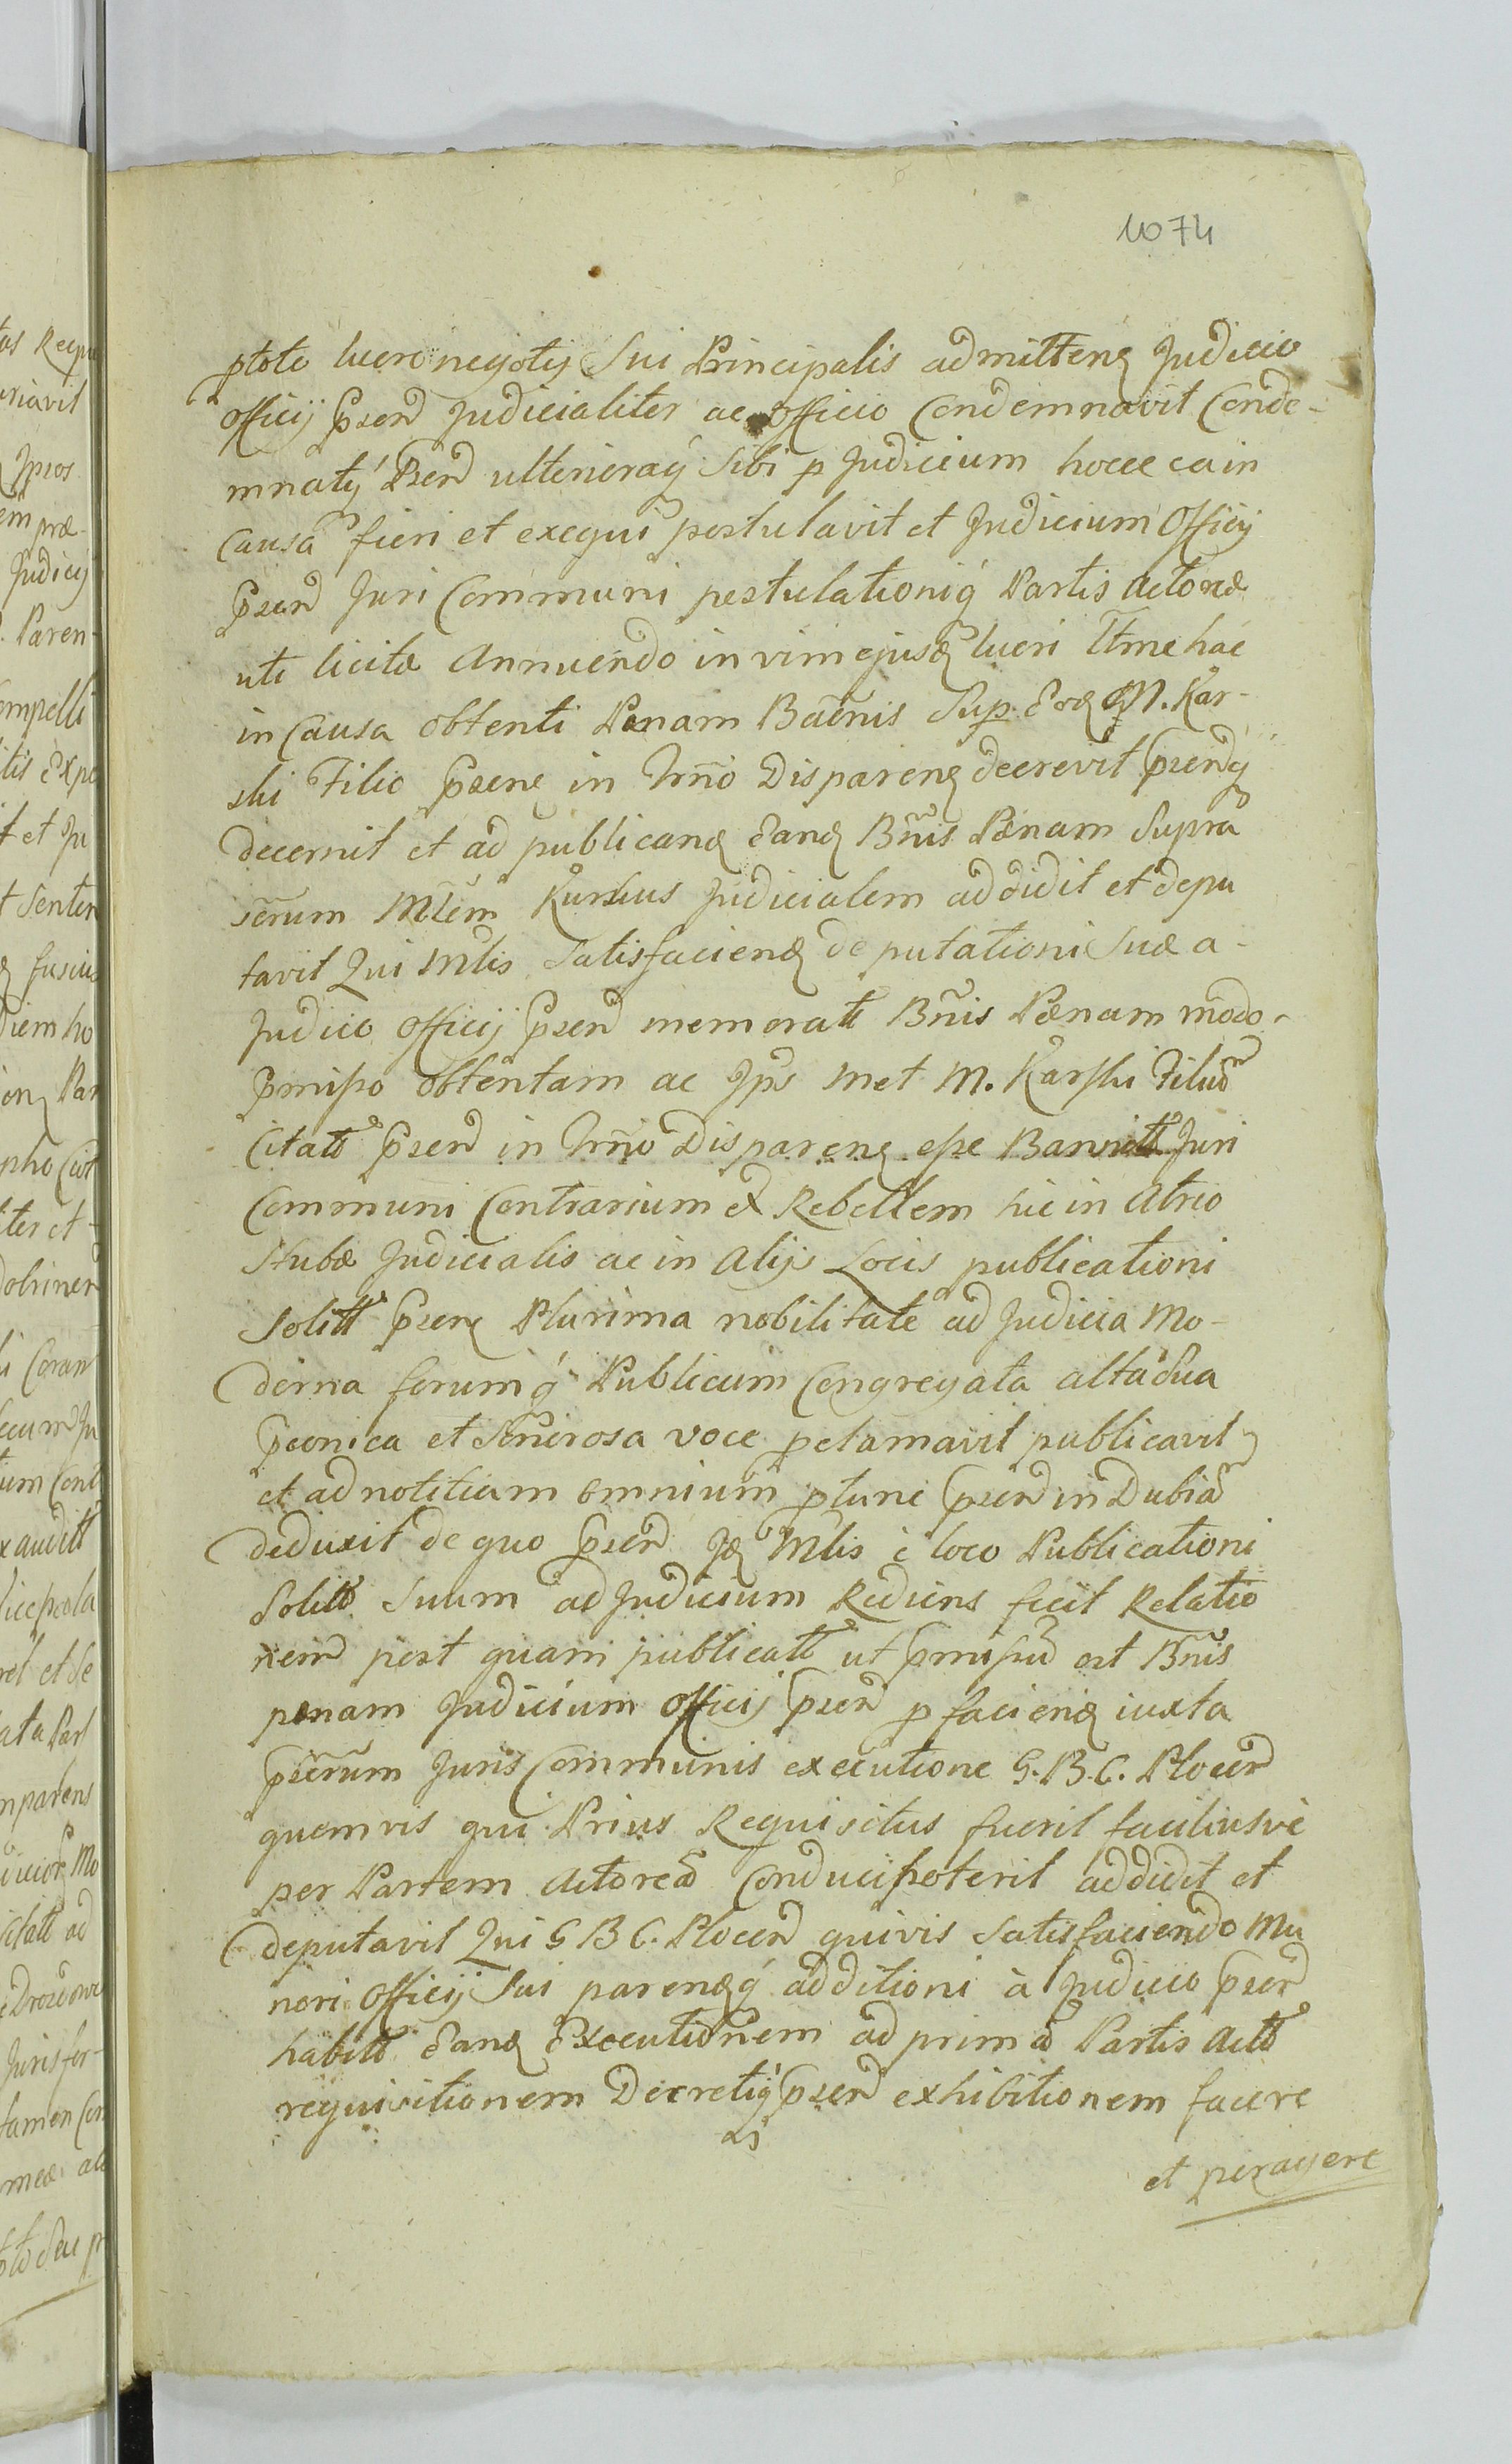 1074
ptoto lucro negotÿ Sui Principalis admitten Judicio
Officij Pñsend Judicialiter ac Officio Condemnavit Conde-
mnatq Psend ulterioraq sibi p Judicium hocce ea in
Causa fieri et exequi postulavit et Judicium Officij
Psend Juri Communi postulationiq Partis Actoreæ
uti licitæ Annuendo in vim ejusd lucri Ttme hac
in Causa obtenti Pœnam Baenis Sup Eod M. Kar-
ski Filio Psens in Trño Disparen decrevit psendq
decernit et ad publicand eand Bñis Pœnam Supra
sĉrum Mlem Kurs Judicialem addidit et depu
tavit Qui Mlis Satisfaciend deputationi Suæ a-
Judicio Officij Psend memorati Bñis Pœnam modo-
pmisso obtentam ac Jps met M. Karski Filiū
Citatt Psend in Trño Disparen esse Bannitt Juri
Communi Contrarium et Rebellem hic in Atrio
Stubæ Judicialis ac in Alijs Locis publicationi
Solitt Psene Plurima nobilitate ad Judicia Mo-
derna forumq Publicum Congregata alta Sua
pconica et Senerosa voce pclamavit publicavit
et ad notitiam omnium ptunc psend in Dubiā
deduxit de quo Psend Jd Mlis è loco Publicationi
Solito Suum ad Judicium Rediens fecit Relatio
nem post quam publicatt ut pmissū est Bñis
pœnam Judicium Officij psend p faciend iuxta
Psĉrum Juris Communis executione G. B. C. Plocen
quemvis qui Prius Requisitus fuerit faciliusve
per Partem Actoreā Conduci poterit addidit et
deputavit Qui G B C. Plocen quivis Satisfaciendo Mu
neri Officij Sui parendq additioni à Judicio Psend
habitt Eand Executionem ad primā Partis Actt
requisitionem Decretiq psend exhibitionem facere
et peragere